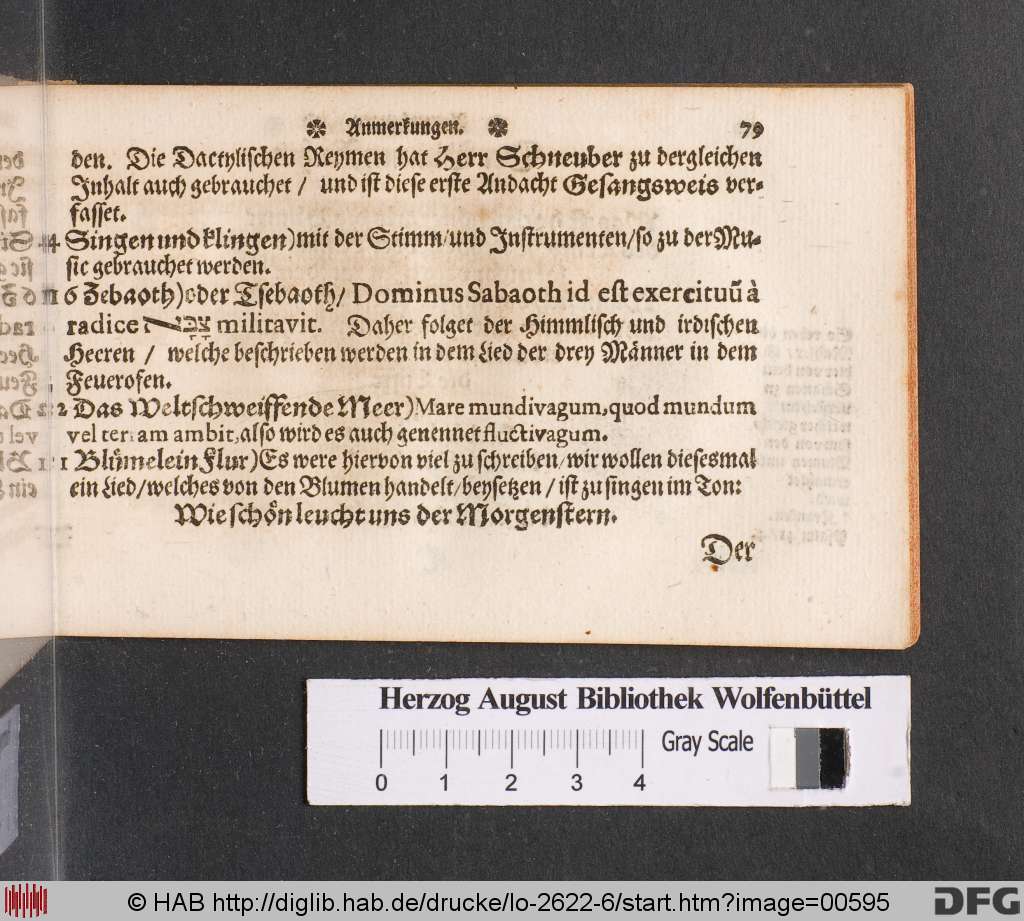 Anmerkungen. 79
den. Die Dactylischen Reymen hat Herr Schneuber zu dergleichen
Inhalt auch gebrauchet / und ist diese erste Andacht Gesangsweis ver-
fasset.
4 Singen und klingen) mit der Stimm/ und Instrumenten/ so zu der Mu-
sic gebrauchet werden.
6 Zebaoth) oder Tsebaoth/ Dominus Sabaoth id est exercituũ à
radice צבא militavit. Daher folget der Himmlisch und irdischen
Heeren / welche beschrieben werden in dem Lied der drey Männer in dem
Feuerofen.
2 Das Weltschweiffende Meer) Mare mundivagum, quod mundum
vel terram ambit, also wird es auch genennet fluctivagum.
1 Blümelein Flur) Es were hiervon viel zu schreiben/ wir wollen diesesmal
ein Lied/ welches von den Blumen handelt/ beysetzen / ist zu singen im Ton:
Wie schön leucht uns der Morgenstern.
Der
Herzog August Bibliothek Wolfenbüttel
Gray Scale
0 1 2 3 4
© HAB http://diglib.hab.de/drucke/lo-2622-6/start.htm?image=00595
DFG